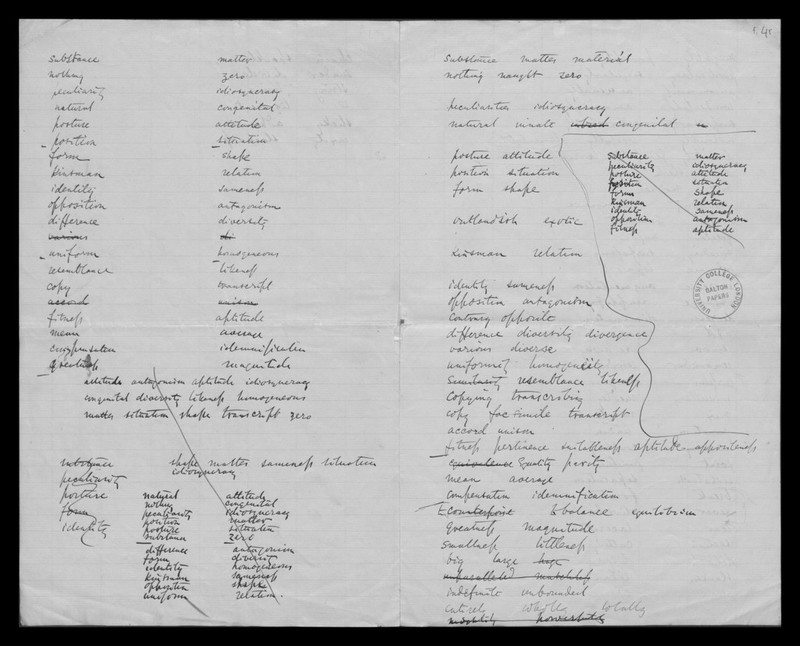 substance matter
nothing zero
peculiarity idiosyncracy
natural congenital
posture attitude
position situation
form shape
kinsman relation
identity sameness
opposition antagonism
difference diversity
various di
uniform homogeneous
resemblance likeness
copy transcript
accord unison
fitness aptitude
mean average
compensation idemnification
greatness magnitude
attitude antagonism aptitude idiosyncracy
congenital diversity likeness homogeneous
matter situation shape transcript zero
substance shape matter sameness situation
peculiarity idiosyncracy
posture
form
identity
natural attitude
nothing congenital
peculiarity idiosyncracy
position matter
posture situation
substance zero
difference antagonism
form diversity
identity homogeneous
kinsman sameness
opposition shape
uniform relation.
4
substance matter material
nothing naught zero
peculiarities idiosyncracy
natural innate inbred congenital
posture attitude
position situation
form shape
outlandish exotic
kinsman relation
substance matter
peculiarity idiosyncracy
posture attitude
position situation
form shape
kinsman relation
identity sameness
opposition antagonism
fitness aptitude
UNIVERSITY COLLEGE LONDON
GALTON PAPERS
identity sameness
opposition antagonism
contrary opposite
difference diversity divergence
various diverse
uniformity homogeneity
similarity resemblance likeness
copying transcribing
copy facsimile transcript
accord unison
fitness pertinence suitableness aptitude appositeness
equivalence equality parity
mean average
compensation idemnification
counterpoise balance equilibrium
greatness magnitude
smallness littleness
big large huge
unparalleled matchless
indefinite unbounded
entirely wholly totally
mightily powerfully